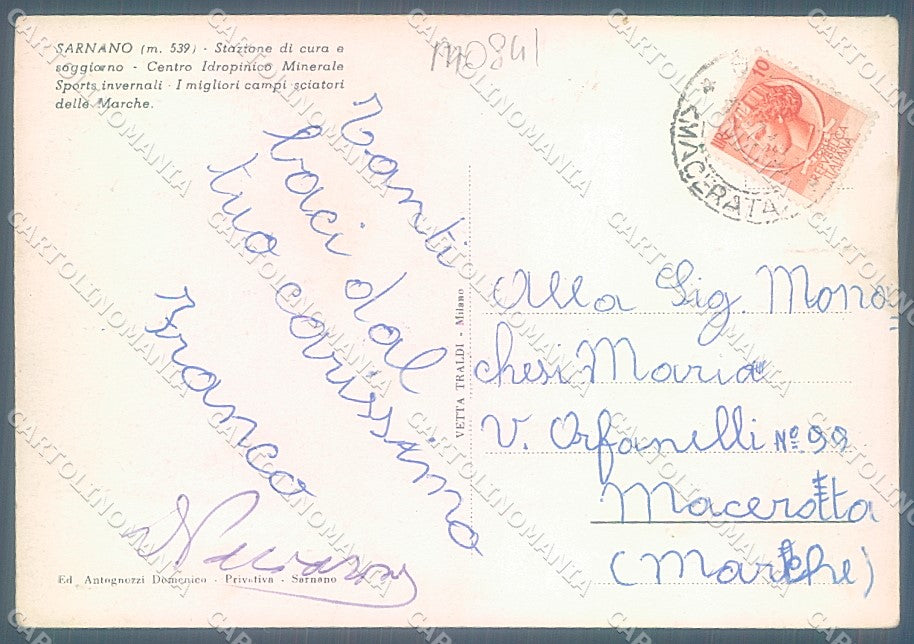 SARNANO (m. 539) - Stazione di cura e
soggiorno - Centro Idropinico Minerale
Sports invernali - I migliori campi sciatori
delle Marche.
MO841
10
REPUBBLICA
ITALIANA
MACERATA
Tanti
baci dal
tuo carissimo
Franco
VETTA TRALDI - Milano
Alla Sig. Mona-
chesi Maria
V. Orfanelli Nº 99
Maceratta
(Marche)
Ed. Antognozzi Domenico - Privativa - Sarnano
CARTOLINOMANIA